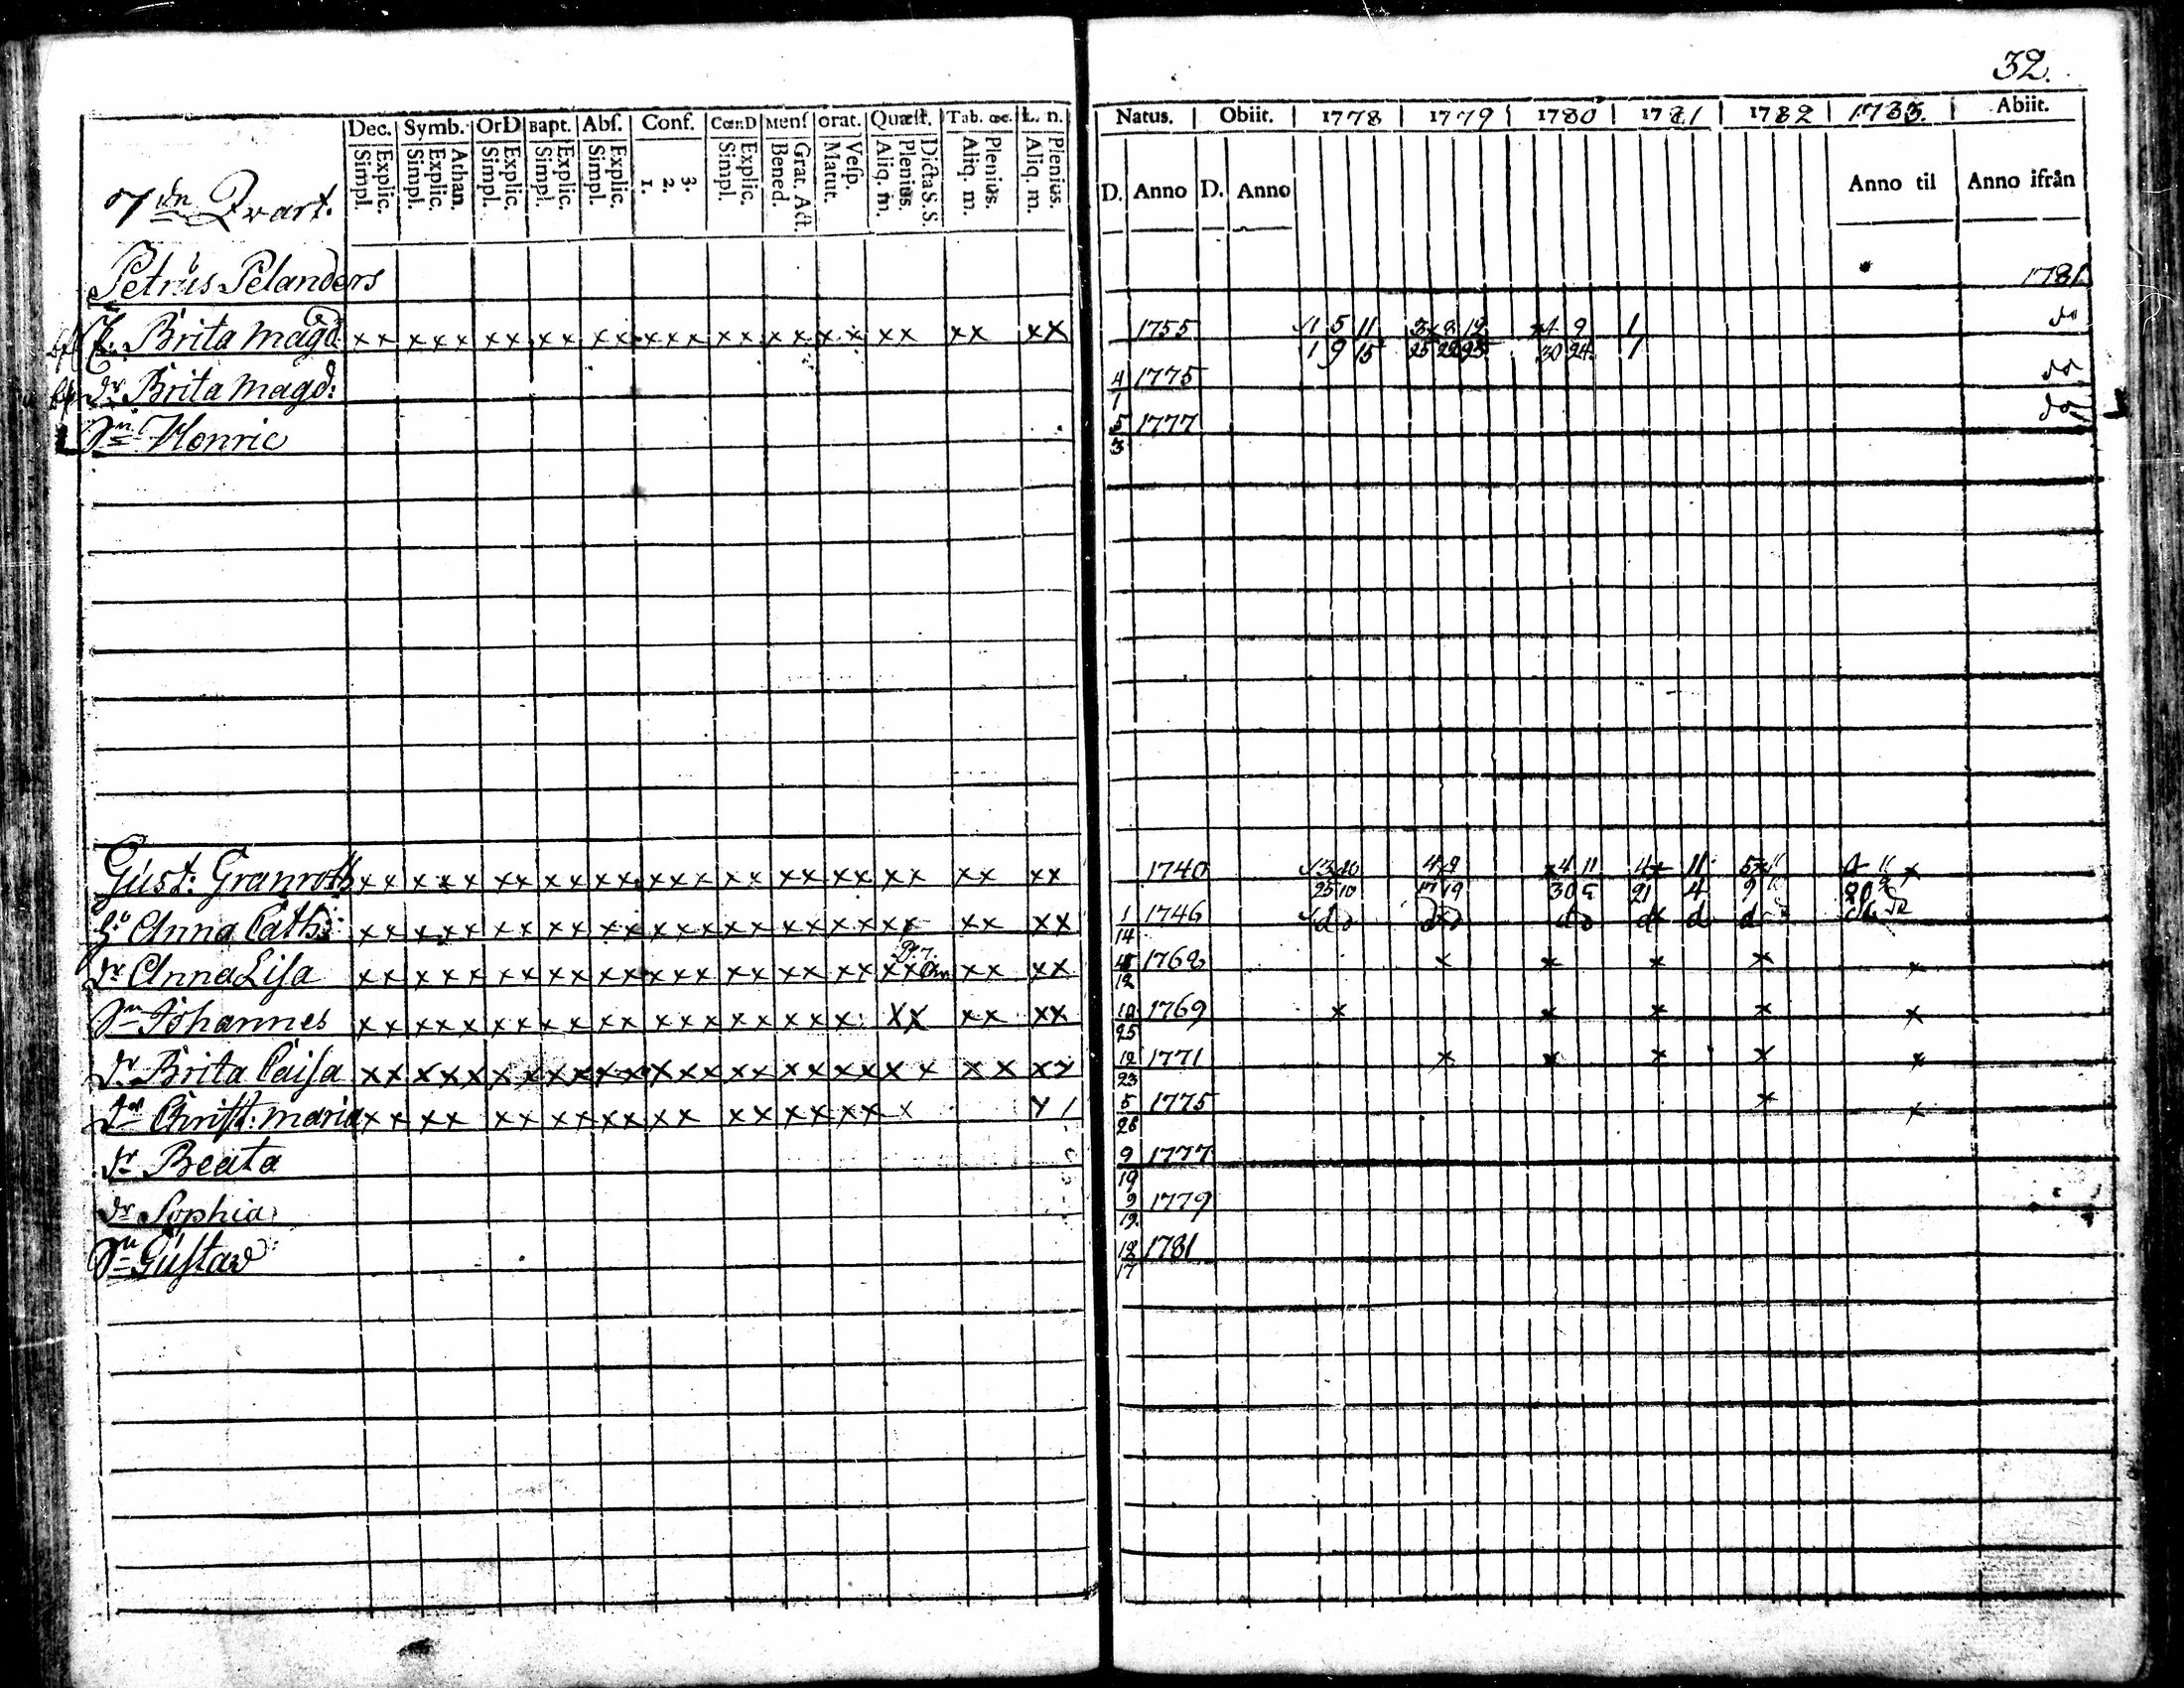 32.
Dec. Symb. OrD Bapt. Abſ. Conf. Cœn.D Menſ orat. Quæſt. Tab. œc. L. n. Natus. Obiit. 1778 1779 1780 1781 1782 1783. Abiit.
Simpl. Explic. Simpl. Explic. Athan. Simpl. Explic. Simpl. Explic. Simpl. Explic. 1. 2. 3. Simpl. Explic. Bened. Grat. Act. Matut. Veſp. Aliq. m. Plenius. Dicta S.S. Aliq. m. Plenius. Aliq. m. Plenius. D. Anno D. Anno Anno til Anno ifrån
7de Qvart.
Petrus Pelanders 1781
Brita Magd. x x x x x x x x x x x x x x x x x x x x x x x x x x 1755 1 5 11 3 8 12 4 9 1 do
1 9 15 25 22 25 30 24 1
dr Brita Magd: 4/1 1775 do
Sn Henric 5/3 1777 do
Gust: Granroth x x x x x x x x x x x x x x x x x x x x x x x x x x 1740 3 10 4 9 4 11 4 11 5 11
25 10 17 19 30 5 21 4 9
Anna Cath: x x x x x x x x x x x x x x x x x x x x x x x x x x 1/14 1746 do do do d d d
dr Anna Liſa x x x x x x x x x x x x x x x x x x x x x x x x x x 1768 x x x x x
Sn Johannes x x x x x x x x x x x x x x x x x x x x x x x x x 10/25 1769 x x x x x
dr Brita Caiſa x x x x x x x x x x x x x x x x x x x x x x x x x x 12/23 1771 x x x x x
dr Chriſt: maria x x x x x x x x x x x x x x x x x x x 5/26 1775 x x
dr Beata 9/19 1777
dr Sophia 9/19 1779
Sn Guſtav 12/17 1781